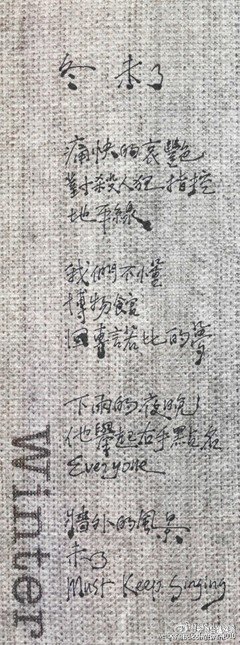 冬 未了
痛快的哀艷
對殺人狂 指控
地平線
我們不懂
博物館
回車諾比的夢
下雨的夜晚
他舉起右手點名
Everyone
牆外的風景
未了
Must Keep Singing
Winter